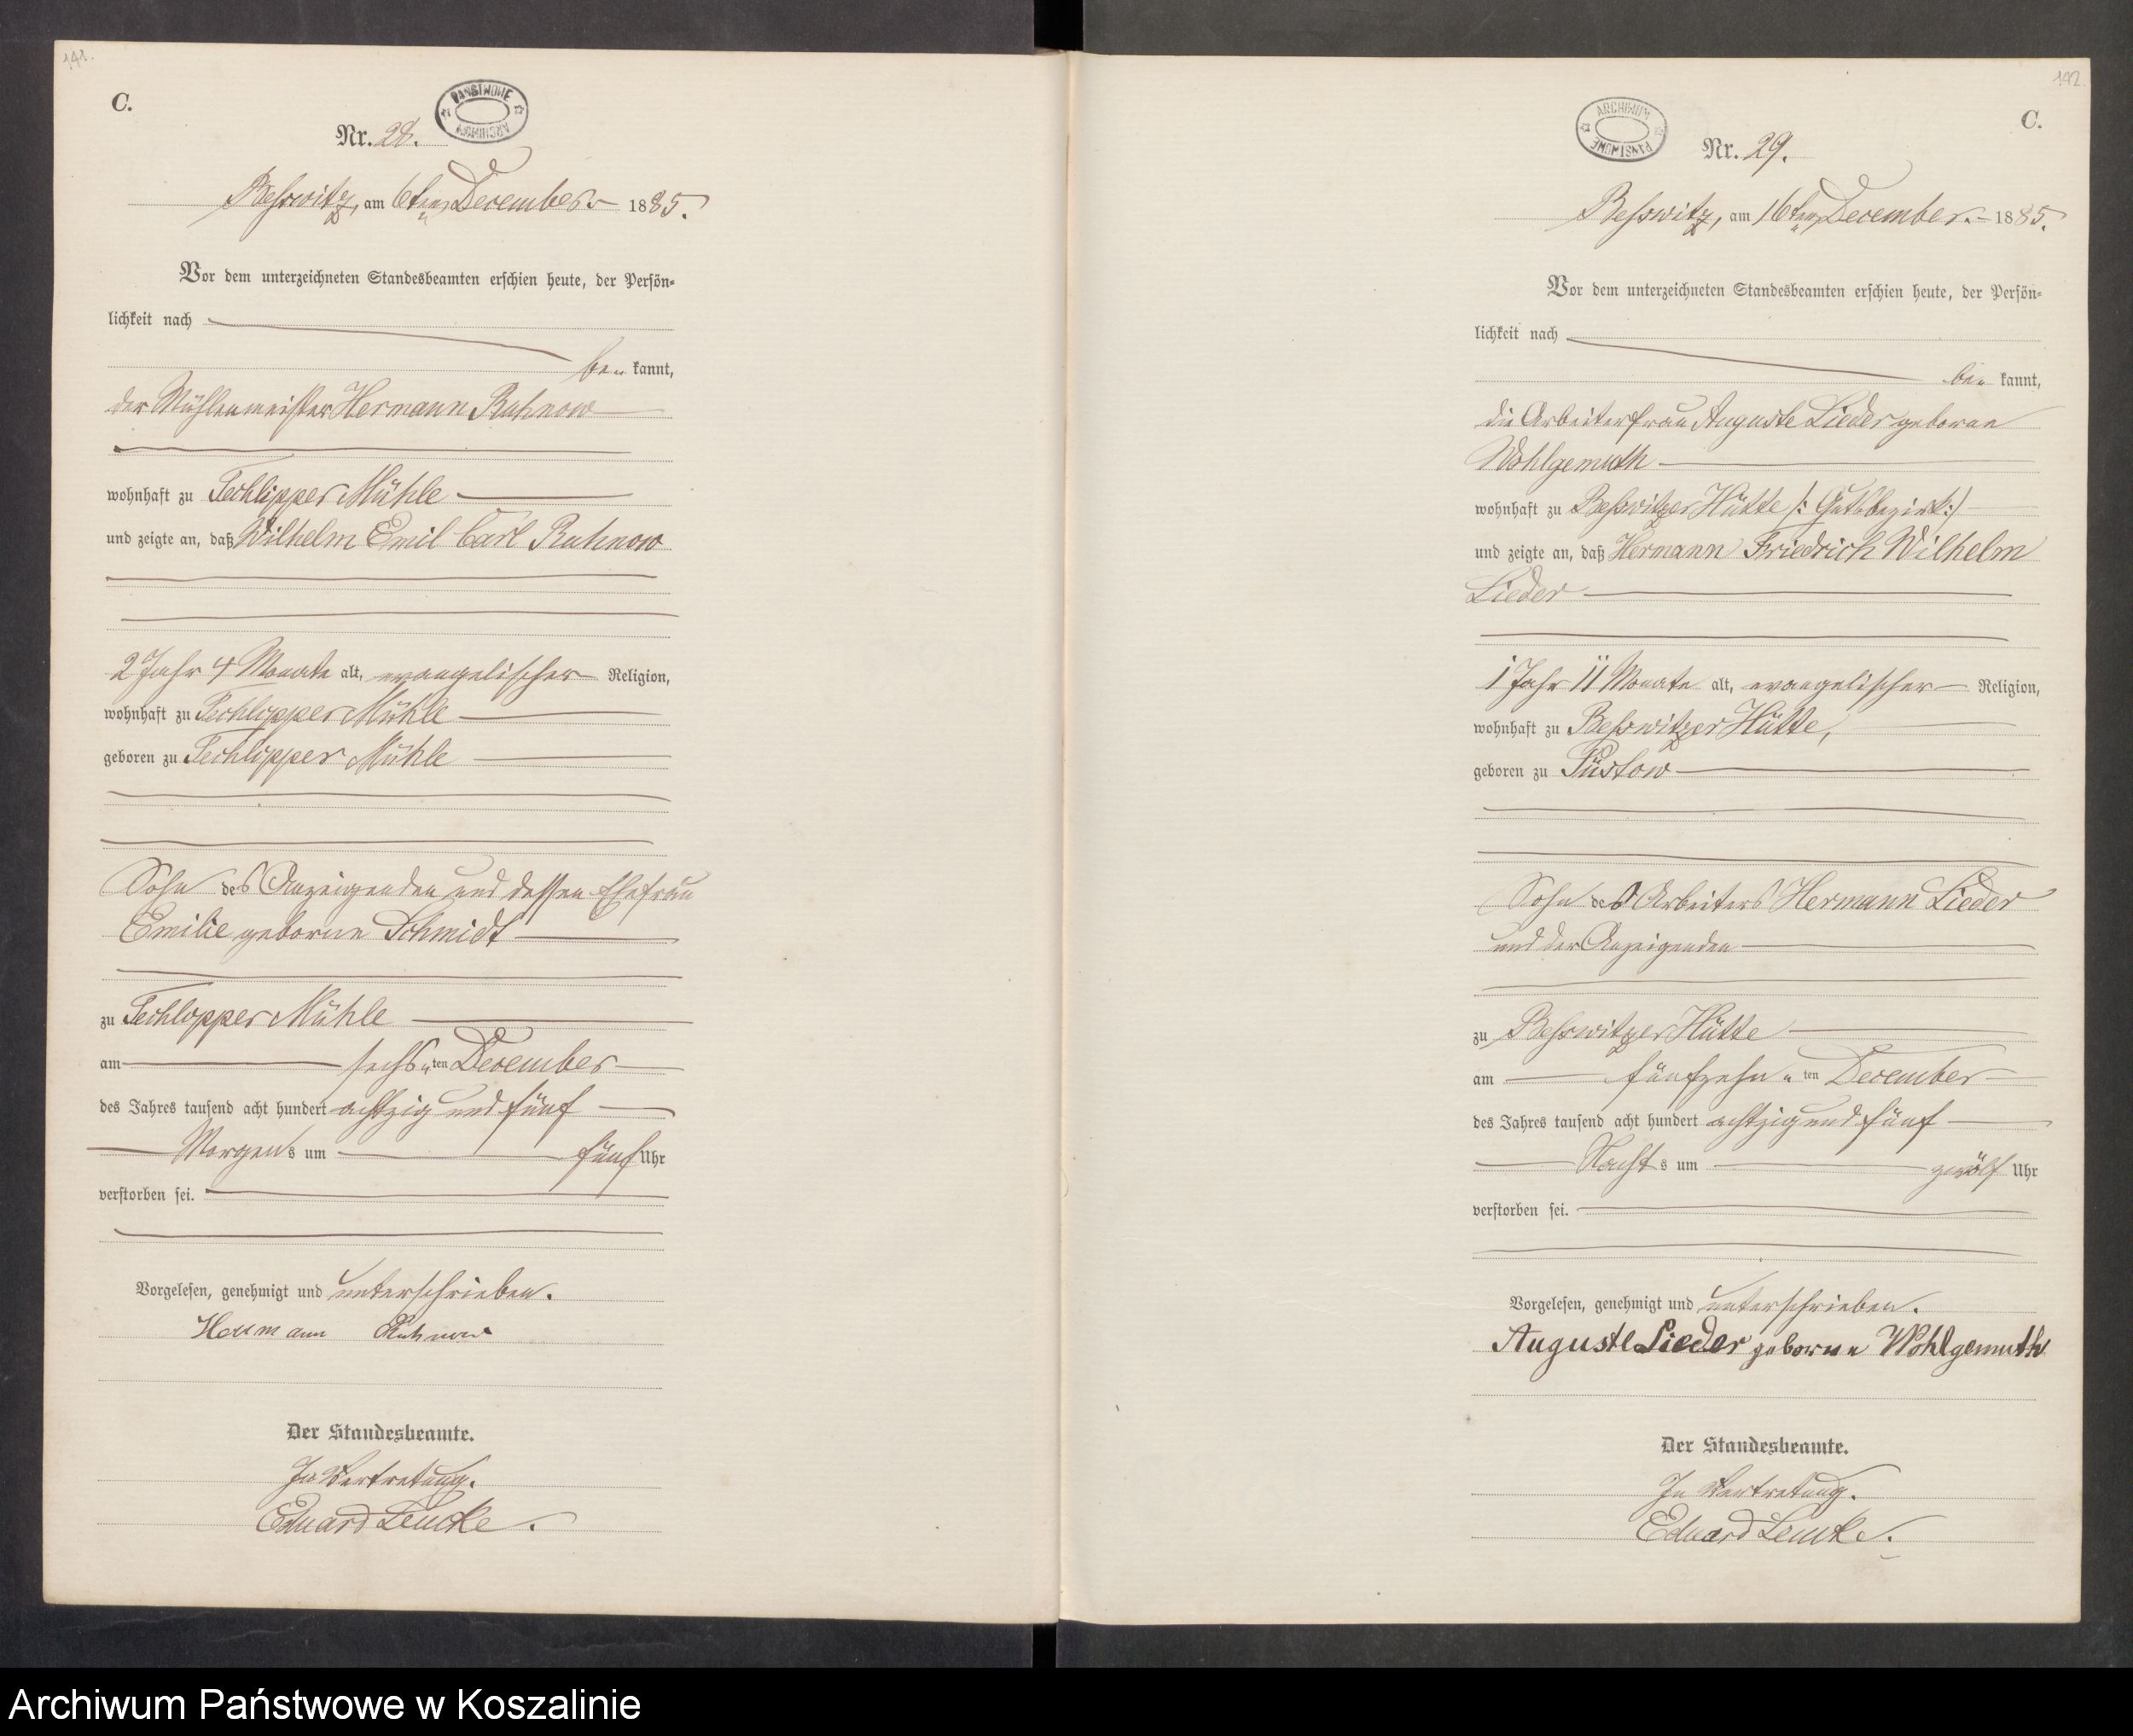 141.
C.
PAŃSTWOWE
ARCHIWUM
Nr. 28.
Beßwitz, am 6ten December 1885.
Vor dem unterzeichneten Standesbeamten erschien heute, der Persön-
lichkeit nach
be kannt,
der Mühlenmeister Hermann Ruhnow
wohnhaft zu Techlipper Mühle
und zeigte an, daß Wilhelm Emil Carl Ruhnow
2 Jahr 4 Monate alt, evangelischer Religion,
wohnhaft zu Techlipper Mühle
geboren zu Techlipper Mühle
Sohn des Anzeigenden und dessen Ehefrau
Emilie geborne Schmidt
zu Techlipper Mühle
am sechs ten December
des Jahres tausend acht hundert achtzig und fünf
Morgens um fünf Uhr
verstorben sei.
Vorgelesen, genehmigt und unterschrieben.
Hermann Ruhnow
Der Standesbeamte.
In Vertretung.
Eduard Lemke.
142.
C.
ARCHIWUM
PAŃSTWOWE
Nr. 29.
Beßwitz, am 16ten December. 1885.
Vor dem unterzeichneten Standesbeamten erschien heute, der Persön-
lichkeit nach
be kannt,
die Arbeiterfrau Auguste Lieder geborne
Wohlgemuth
wohnhaft zu Beßwitzer Hütte /: Gutsbezirk :/
und zeigte an, daß Hermann Friedrich Wilhelm
Lieder
1 Jahr 11 Monate alt, evangelischer Religion,
wohnhaft zu Beßwitzer Hütte,
geboren zu Püstow
Sohn des Arbeiters Hermann Lieder
und der Anzeigenden
zu Beßwitzer Hütte
am fünfzehn ten December
des Jahres tausend acht hundert achtzig und fünf
Nachts um zwölf Uhr
verstorben sei.
Vorgelesen, genehmigt und unterschrieben.
Auguste Lieder geborne Wohlgemuth
Der Standesbeamte.
In Vertretung.
Eduard Lemke.
Archiwum Państwowe w Koszalinie